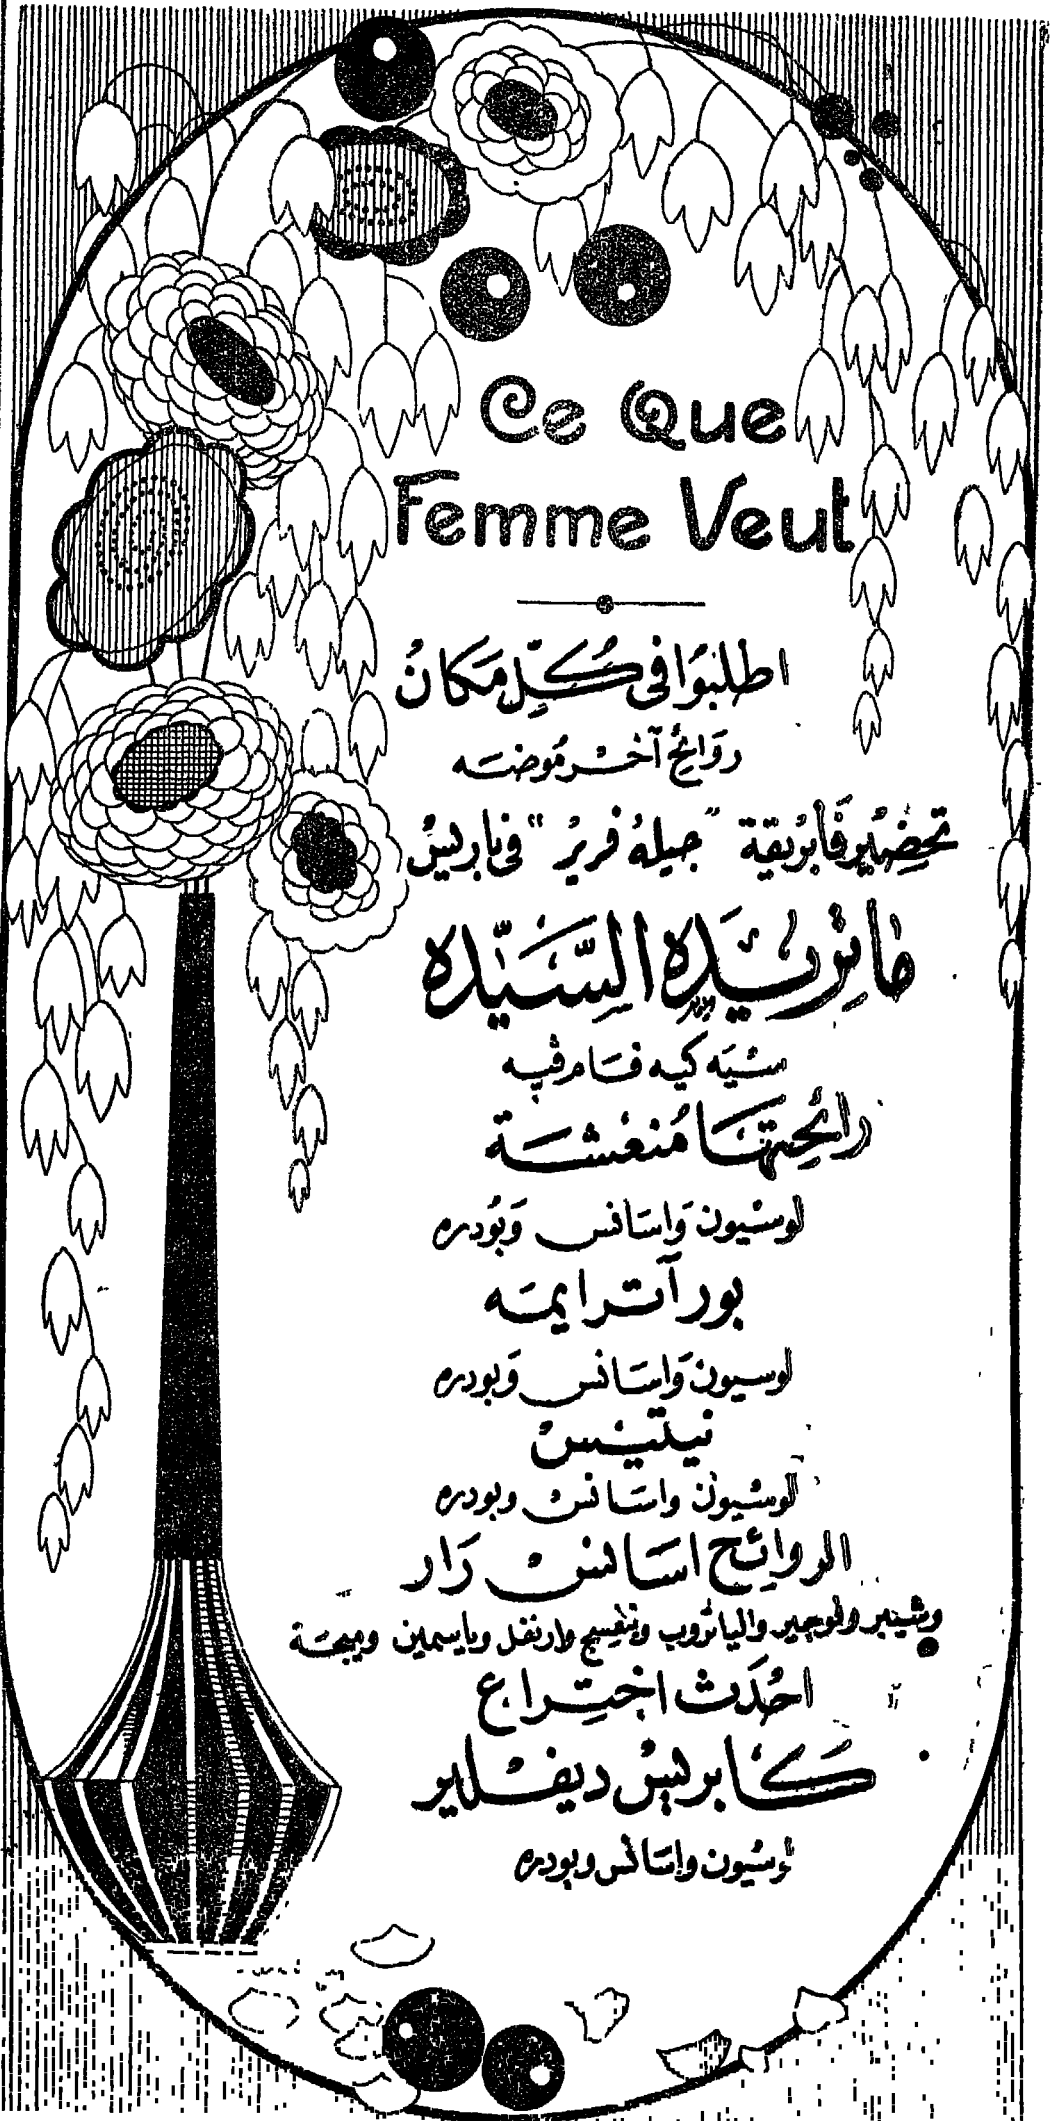 Ce Que
Femme Veut
اطلبوا في كل مكان
روائح آخر موضه
تحضير فابريقة "جيله فرير" في باريس
ما تريده السيده
سيه كيه فام ڤيه
رائحتها منعشة
لوسيون واسانس وبودره
بور آترايمه
لوسيون واسانس وبودره
نيتيس
لوسيون واسانس وبودره
الروائح اسانس رار
وشيبر وفوجير والياتروب وبنفسج وارنفل وياسمين وميجة
احدث اختراع
كابريس ديفلير
لوسيون واسانس وبودره